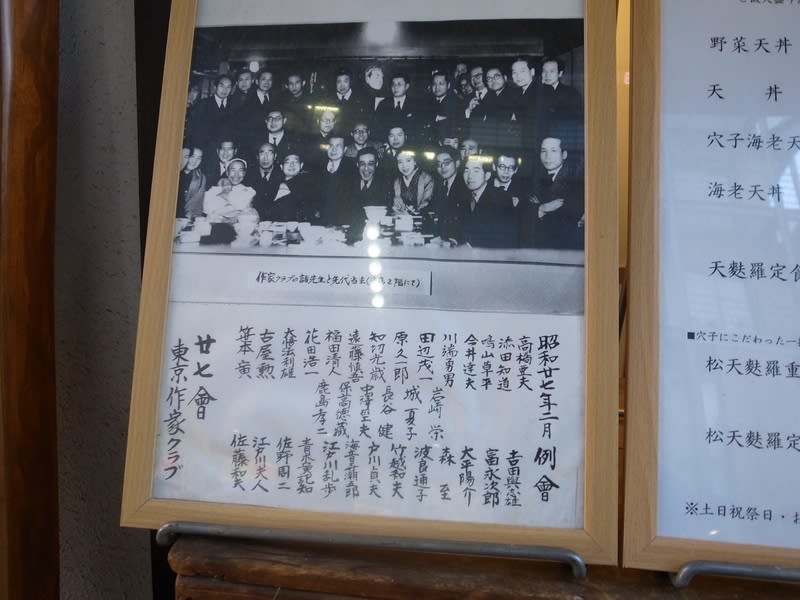 作家クラブの諸先生と先代店主
昭和廿七年二月 例會
高橋亜夫
添田知道
鳴山草平
今井達夫
川端勇男
岩崎 栄
田辺茂一
城 夏子
原久一郎
長谷 健
知切光歳
中澤巠夫
遠藤慎吾
保高徳蔵
福田清人
鹿島孝二
花田浩一
大隈法利雄
古屋 勲
笹本 寅
吉田與志雄
富永次郎
大平陽介
森 至
波良通子
竹越和夫
戸川貞夫
海音寺潮五郎
江戸川乱歩
佐野周二
江戸川夫人
佐藤和夫
廿七會
東京作家クラブ
野菜天丼
天 丼
穴子海老天
海老天丼
天麩羅定食
■穴子にこだわった一
松天麩羅重
松天麩羅定
※土日祝祭日・お